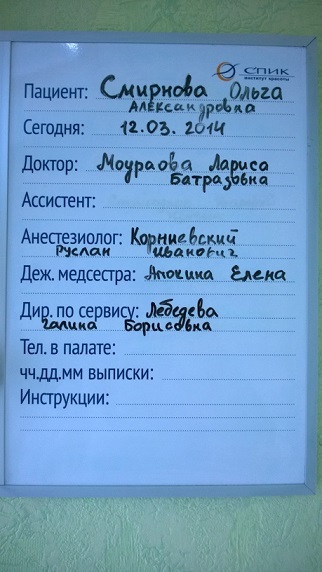 СПИК
институт красоты
Пациент: Смирнова Ольга
Александровна
Сегодня: 12.03.2014
Доктор: Моураова Лариса
Батразовна
Ассистент:
Анестезиолог: Корниевский
Руслан Иванович
Деж. медсестра: Апокина Елена
Дир. по сервису: Лебедева
Галина Борисовна
Тел. в палате:
чч.дд.мм выписки:
Инструкции: